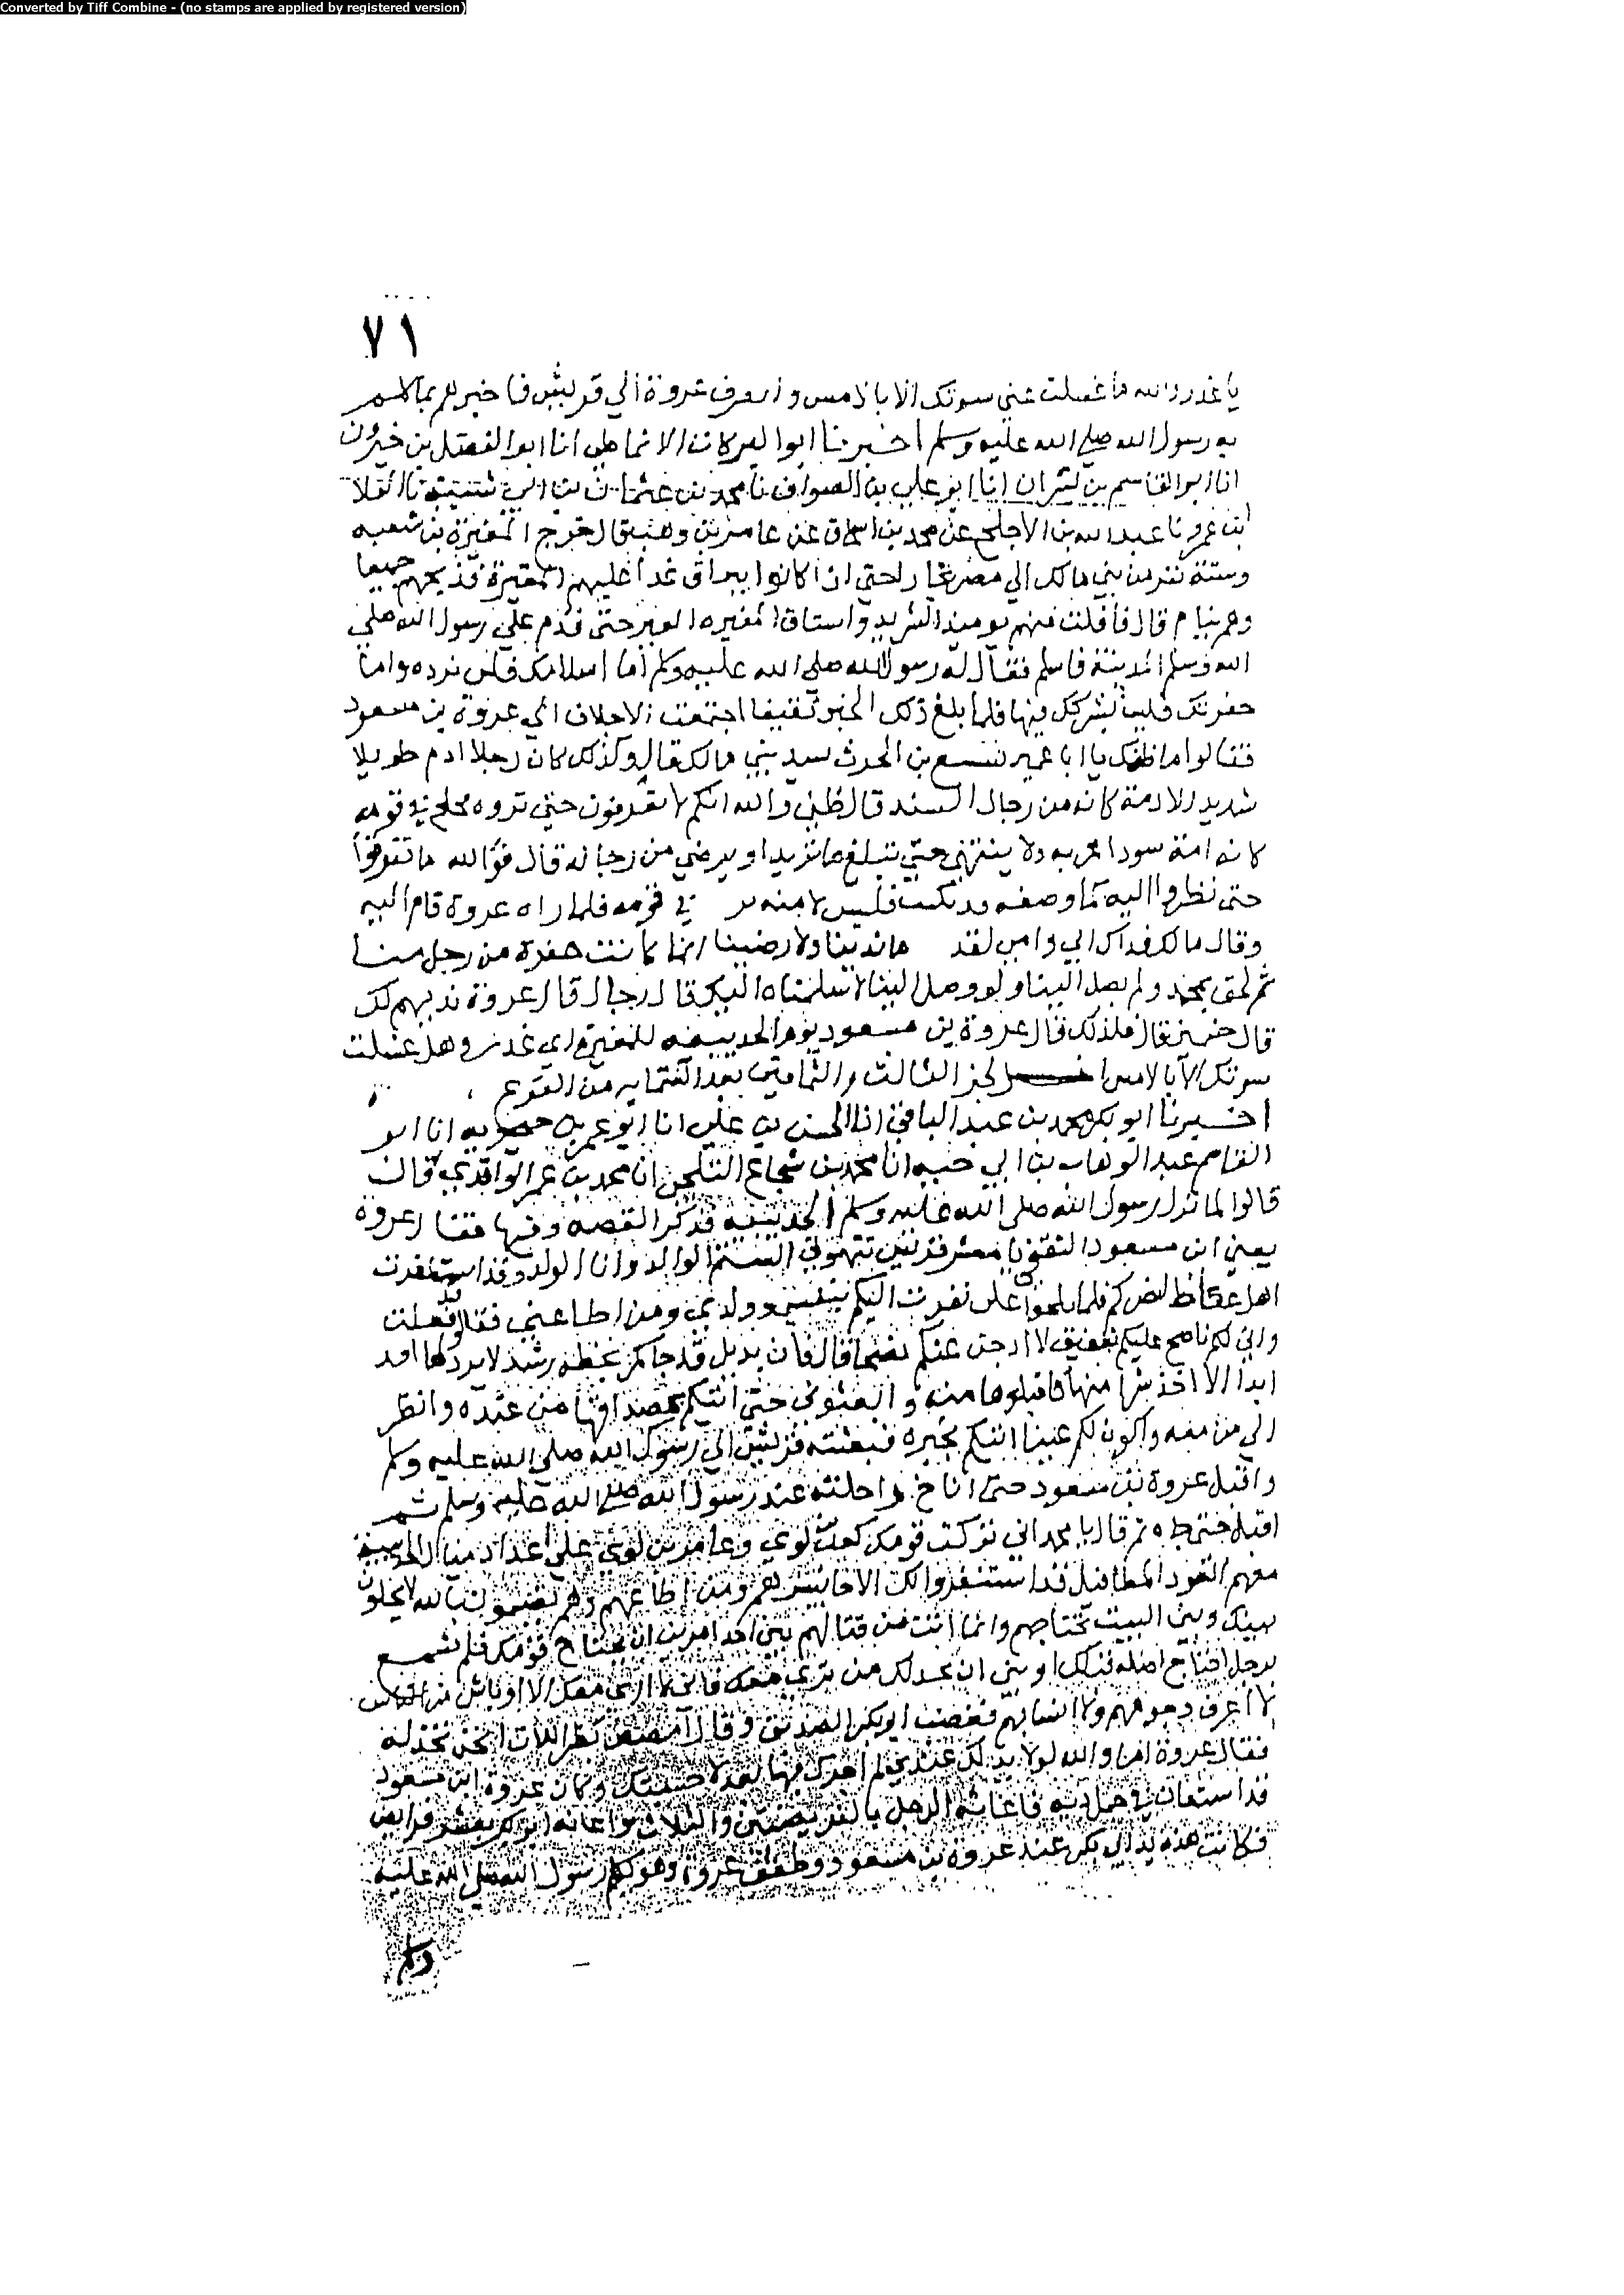 Converted by Tiff Combine - (no stamps are applied by registered version)
٧١
يا غدر والله ما غسلت عني سوتك الا بالامس وانصرف عروة الي قريش فاخبرهم بما كلمه
به رسول الله صلى الله عليه وسلم اخبرنا ابو البركات الانماطي انا ابو الفضل بن خيرون
انا ابو القاسم بن بشران انا ابو علي بن الصواف نا محمد بن عثمان بن ابي شيبة نا
ابن عمرو نا عبد الله بن الاجلح عن محمد بن اسحاق عن عامر بن وهب قال خرج المغيرة بن شعبه
وستة نفر من بني مالك الي مصر تجارا حتى اذا كانوا ببراق عدا عليهم المغيرة فذبحهم جميعا
وهم نيام قال فافلت منهم يومئذ الشريد واستاق المغيره العير حتى قدم علي رسول الله صلي
الله وسلم المدينة فاسلم فقال له رسول الله صلى الله عليه وسلم اما اسلامك فلن نرده واما
خفرتك فلسنا نشركك فيها فلما بلغ ذلك الخبر ثقيفا اجتمعت الاحلاف الي عروة بن مسعود
فقالوا ما ظنك يا ابا عمير بن الحرث سيد بني مالك قال وكذلك كان رجلا ادم طويلا
شديد الادمة كانه من رجال السند قال ظني والله انكم لا تفرقون حتي تروه في قومه
كانه امة سودا عربه ولا ينتهي حتي تبلغ ما تريد او يرضي من رجاله قال فوالله ما تفرقوا
حتى نظروا اليه كما وصفه في قومه فلما راه عروة قام اليه
وقال مالك فداك ابي وامي لقد ما ندينا ولا رضينا انما كانت خفرة من رجل منا
ثم لحق بمحمد ولم يصل الينا ولو وصل الينا لاسلمناه اليك قال رجال قال عروة نديهم لك
قال فلذلك قال عروة بن مسعود يوم الحديبيه للمغيرة اي غدر وهل غسلت
سوتك الا بالامس اخر الجز الثالث والثمانين بعد الثلثمايه من الفرع
اخبرنا ابو بكر محمد بن عبد الباقي انا الحسن بن علي انا ابو عمر بن حيويه انا ابو
القاسم عبد الوهاب بن ابي حيه انا محمد بن شجاع الثلجي انا محمد بن عمر الواقدي قال
قالوا لما نزل رسول الله صلى الله عليه وسلم الحديبيه فذكر القصه وفيها فقال عروة
يعني ابن مسعود الثقفي يا معشر قريش تتهموني الستم الوالد وانا الولد وقد استنفرت
اهل عكاظ لنصركم فلما بلحوا علي نفرت اليكم بنفسي وولدي ومن اطاعني فقالوا قد فعلت
واني لكم ناصح عليكم شفيق لا ادخر عنكم نصحا قال فان بديل قد جاكم بخطة رشد لا يردها احد
ابدا الا اخذ شرا منها فاقبلوها منه وابعثوني حتي اتيكم بمصداقها من عنده وانظر
الي من معه واكون لكم عينا اتيكم بخبره فبعثته قريش الي رسول الله صلي الله عليه وسلم
واقبل عروة بن مسعود حتى اناخ راحلته عند رسول الله صلى الله عليه وسلم ثم
اقبل حتي جاه ثم قال يا محمد اني تركت قومك كعب بن لوي وعامر بن لوي علي اعداد مياه الحديبية
معهم العوذ المطافيل قد استنفروا لك الاحابيش هم ومن اطاعهم وهم يقسمون بالله لا يخلون
بينك وبين البيت تجتاحهم وانما انت من قتالهم بين احد امرين ان تجتاح قومك فلم نسمع
برجل اجتاح اصله قبلك او بين ان يخذلك من نرى معك فاني لا ارى معك الا اوباش من الناس
لا اعرف وجوههم ولا انسابهم فغضب ابو بكر الصديق وقال امصص بظر اللات انحن نخذله
فقال عروة اما والله لولا يد لك عندي لم اجزك بها بعد لاجبتك وكان عروة ابن مسعود
قد استعان في حمل دية فاعانه الرجل بالفريضتين والثلاث واعانه ابو بكر بعشر فرايض
فكانت هذه يد ابي بكر عند عروة بن مسعود وطفق عروة وهو يكلم رسول الله صلي الله عليه
وسلم